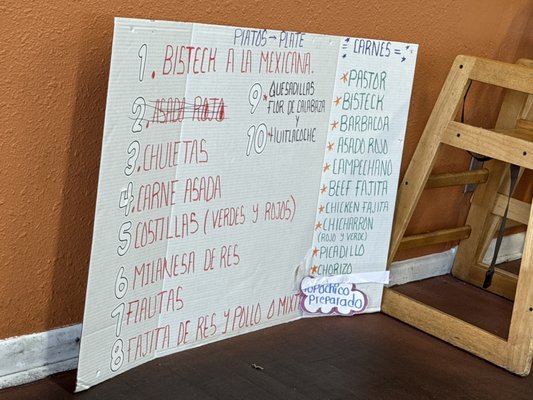 PLATOS → PLATE
1. BISTECK A LA MEXICANA.
2. ASADO ROJO
3. CHULETAS
4. CARNE ASADA
5 COSTILLAS (VERDES Y ROJOS)
6 MILANESA DE RES
7 FLAUTAS
8 FAJITA DE RES Y POLLO O MIXT
9 * QUESADILLAS
FLOR DE CALABAZA
Y
10 * HUITLACOCHE
= CARNES =
* PASTOR
* BISTECK
* BARBACOA
* ASADO ROJO
* CAMPECHANO
* BEEF FAJITA
* CHICKEN FAJITA
* CHICHARRON
(ROJO Y VERDE)
* PICADILLO
* CHORIZO
TOPOCHICO
PREPARADO